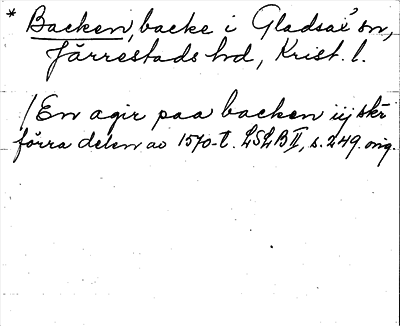 * Backen, backe i Gladsax' sn,
Järrestads hd, Krist. l.
/En agir paa backen iij skr
förra delen av 1570-t. LSLB II, s. 249. orig.